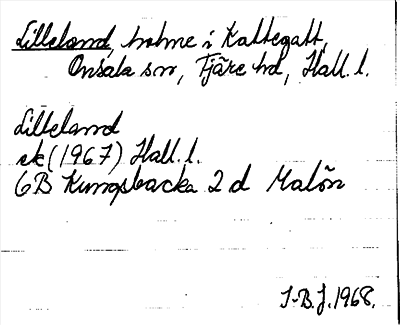 Lilleland, holme i Kattegatt,
Onsala sn, Fjäre hd, Hall. l.
Lilleland
ek (1967) Hall. l.
6B Kungsbacka 2 d Malön
I-B.J. 1968.